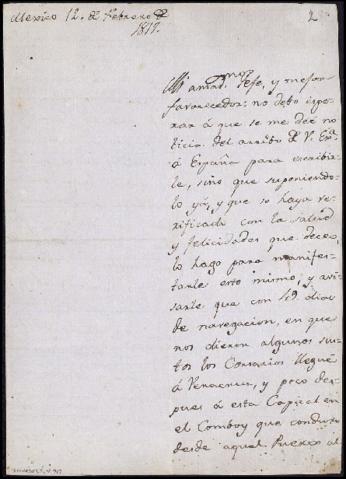 Mexico 12. de Febrero de
1817.
2
Mi amad.mo Jefe, y mejor
favorecedor: no debo espe-
rar á que se me dé no-
ticia del arribo de V. Ex.a
á España para escribir-
le, sino que suponiendo-
lo ya, y que se haya ve-
rificado con la salud
y felicidades que deseo,
lo hago para manifes-
tarle esto mismo, y avi-
sarle que con 49 dias
de navegacion, en que
nos dieron algunos sus-
tos los Corsarios llegué
á Veracruz, y poco des-
pues á esta Capital en
el Comboy que conduxe
desde aquel Puerto al